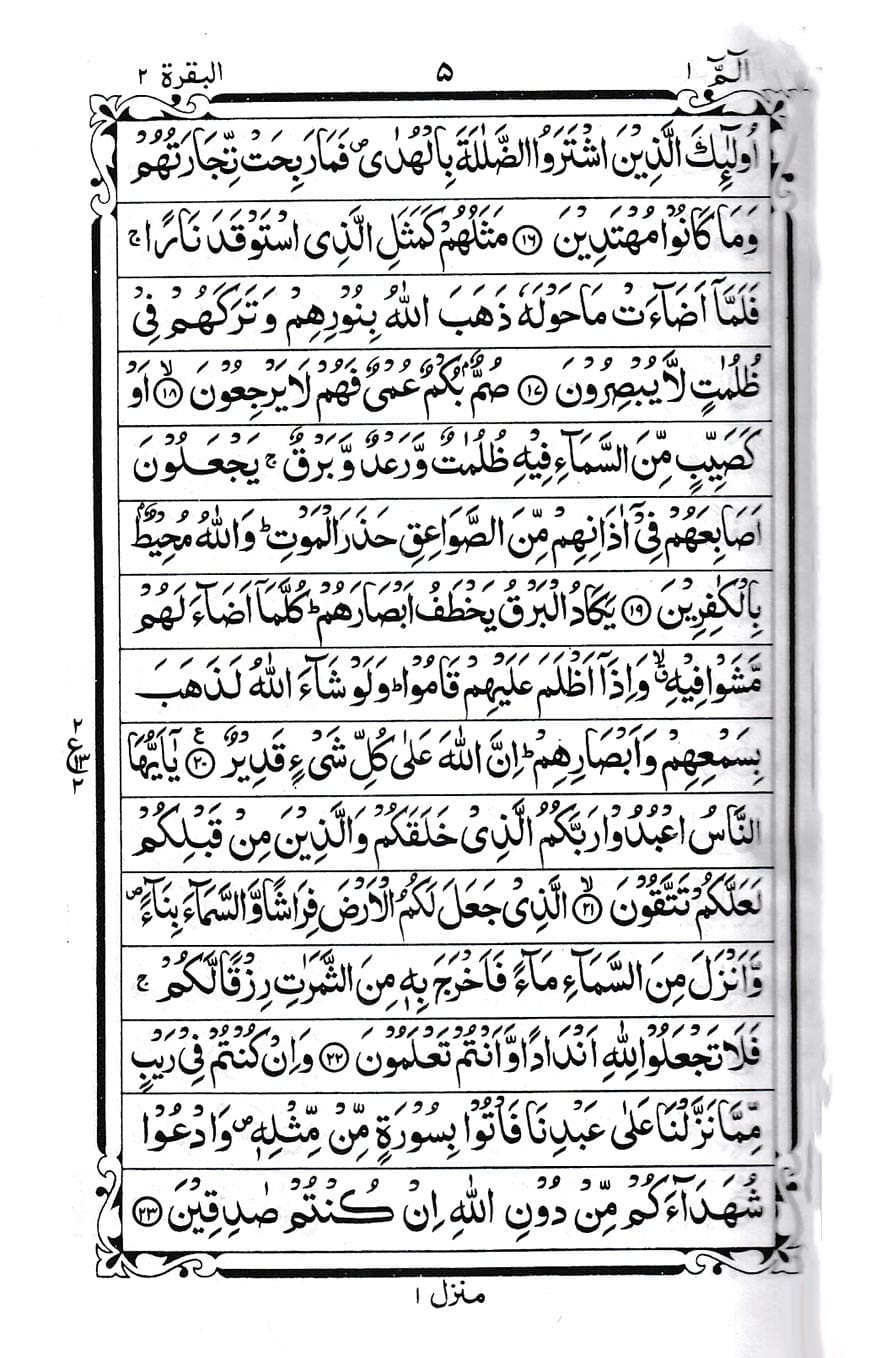 الٓمّٓ ١ ٥ البقرة ٢
اُولٰٓئِكَ الَّذِيْنَ اشْتَرَوُا الضَّلٰلَةَ بِالْهُدٰى ص فَمَا رَبِحَتْ تِّجَارَتُهُمْ
وَمَا كَانُوْا مُهْتَدِيْنَ ١٦ مَثَلُهُمْ كَمَثَلِ الَّذِى اسْتَوْقَدَ نَارًا ج
فَلَمَّآ اَضَآءَتْ مَا حَوْلَهٗ ذَهَبَ اللّٰهُ بِنُوْرِهِمْ وَتَرَكَهُمْ فِىْ
ظُلُمٰتٍ لَّا يُبْصِرُوْنَ ١٧ صُمٌّۢ بُكْمٌ عُمْىٌ فَهُمْ لَا يَرْجِعُوْنَ لا ١٨ اَوْ
كَصَيِّبٍ مِّنَ السَّمَآءِ فِيْهِ ظُلُمٰتٌ وَّرَعْدٌ وَّبَرْقٌ ج يَجْعَلُوْنَ
اَصَابِعَهُمْ فِىْٓ اٰذَانِهِمْ مِّنَ الصَّوَاعِقِ حَذَرَ الْمَوْتِ ط وَاللّٰهُ مُحِيْطٌۢ
بِالْكٰفِرِيْنَ ١٩ يَكَادُ الْبَرْقُ يَخْطَفُ اَبْصَارَهُمْ ط كُلَّمَآ اَضَآءَ لَهُمْ
مَّشَوْا فِيْهِ ق لا وَاِذَآ اَظْلَمَ عَلَيْهِمْ قَامُوْا ط وَلَوْ شَآءَ اللّٰهُ لَذَهَبَ
بِسَمْعِهِمْ وَاَبْصَارِهِمْ ط اِنَّ اللّٰهَ عَلٰى كُلِّ شَىْءٍ قَدِيْرٌ ع ٢٠ يٰٓاَيُّهَا
٢ ع ١٣ ٢
النَّاسُ اعْبُدُوْا رَبَّكُمُ الَّذِىْ خَلَقَكُمْ وَالَّذِيْنَ مِنْ قَبْلِكُمْ
لَعَلَّكُمْ تَتَّقُوْنَ لا ٢١ الَّذِىْ جَعَلَ لَكُمُ الْاَرْضَ فِرَاشًا وَّالسَّمَآءَ بِنَآءً ص
وَّاَنْزَلَ مِنَ السَّمَآءِ مَآءً فَاَخْرَجَ بِهٖ مِنَ الثَّمَرٰتِ رِزْقًا لَّكُمْ ج
فَلَا تَجْعَلُوْا لِلّٰهِ اَنْدَادًا وَّاَنْتُمْ تَعْلَمُوْنَ ٢٢ وَاِنْ كُنْتُمْ فِىْ رَيْبٍ
مِّمَّا نَزَّلْنَا عَلٰى عَبْدِنَا فَاْتُوْا بِسُوْرَةٍ مِّنْ مِّثْلِهٖ ص وَادْعُوْا
شُهَدَآءَكُمْ مِّنْ دُوْنِ اللّٰهِ اِنْ كُنْتُمْ صٰدِقِيْنَ ٢٣
منزل ١